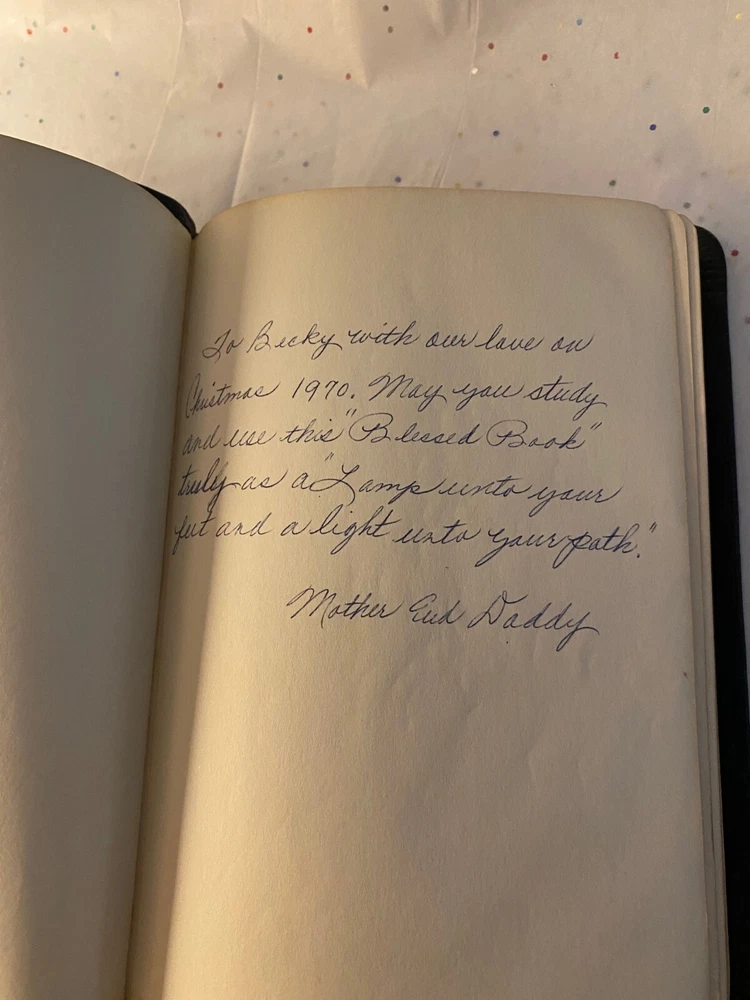 To Becky with our love on
Christmas 1970. May you study
and use this "Blessed Book"
truly as a "Lamp unto your
feet and a light unto your path."
Mother And Daddy